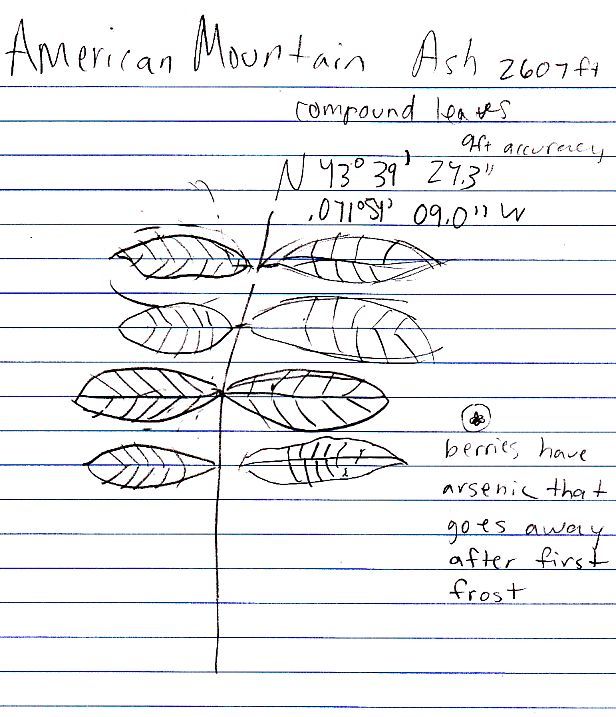 American Mountain Ash 2607ft
compound leaves
9ft accuracy
N 43° 39' 27.3"
.071°51' 09.0" W
berries have
arsenic that
goes away
after first
frost